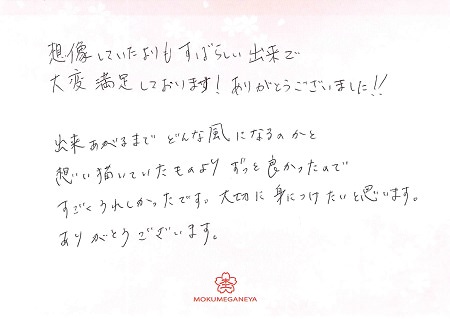 想像していたよりもすばらしい出来で
大変満足しております！ありがとうございました!!
出来あがるまでどんな風になるのかと
想い描いていたものよりずっと良かったので
すごくうれしかったです。大切に身につけたいと思います。
ありがとうございます。
MOKUMEGANEYA